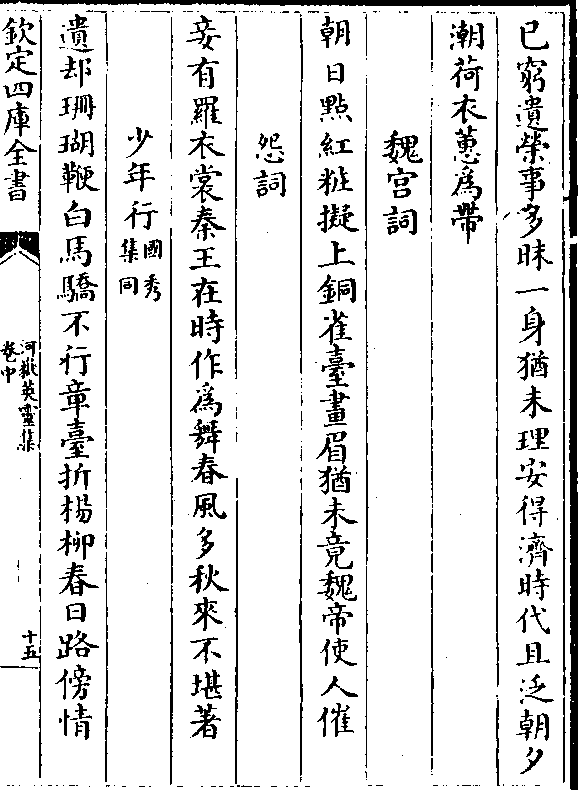 已窮遺榮事多昧一身猶未理安得濟時代且泛朝夕
潮荷衣蕙為帶
魏宫詞
朝日點紅粧擬上銅雀臺畫眉猶未竟魏帝使人催
怨詞
妾有羅衣裳秦王在時作為舞春風多秋來不堪著
少年行國秀集同
遺却珊瑚鞭白馬驕不行章臺折楊柳春日路傍情
欽定四庫全書
河嶽英靈集
卷中
十五